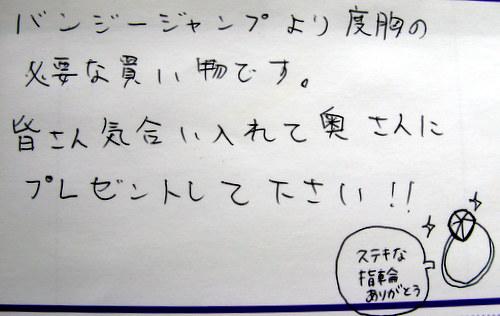 バンジージャンプより度胸の
必要な買い物です。
皆さん気合い入れて奥さんに
プレゼントして下さい!!
ステキな
指輪
ありがとう